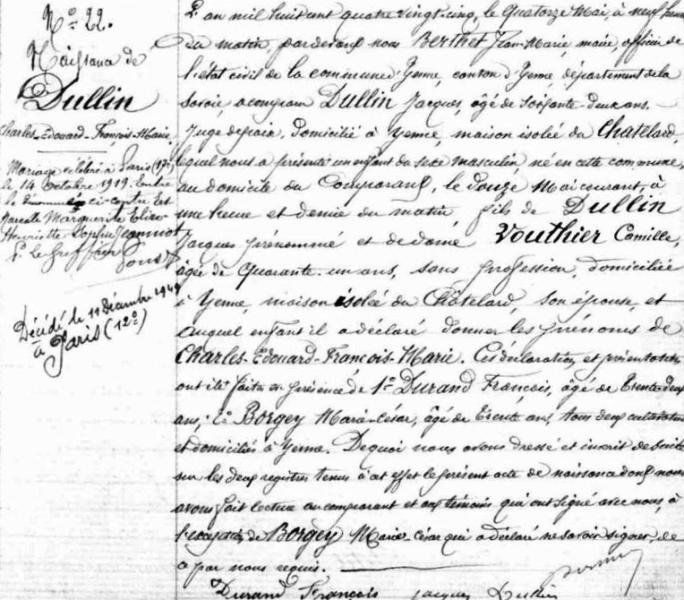 N° 22.
Naissance de
Dullin
Charles-Edouard-François-Marie
Mariage célébré à Paris (17e)
le 14 Octobre 1919. Entre
le ci-contre et
Marguerite
Henriette Sophie Jeannot
P. Le Greffier
Décédé le 11 Décembre 1949
à Paris (12e)
L'an mil huit cent quatre vingt-cinq, le Quatorze Mai, à neuf heures
du matin, pardevant nous Berthet Jean-Marie, maire, officier de
l'état civil de la commune d'Yenne, canton d'Yenne, département de la
Savoie, a comparu Dullin Jacques, âgé de Soixante-deux ans,
Juge de paix, domicilié à Yenne, maison isolée du Châtelard,
lequel nous a présenté un enfant du sexe masculin, né en cette commune,
au domicile du Comparant, le Douze Mai courant, à
une heure et demie du matin, fils de Dullin
Jacques prénommé et de dame Vouthier Camille,
âgée de Quarante-un ans, sans profession, domiciliée
à Yenne, maison isolée du Châtelard, son épouse, et
auquel enfant il a déclaré donner les prénoms de
Charles-Edouard-François-Marie. Ces déclaration et présentation
ont été faites en présence de 1° Durand François, âgé de Trente-deux
ans, 2° Borgey Marie-César, âgé de Trente ans, tous deux cultivateurs
et domiciliés à Yenne. De quoi nous avons dressé et inscrit de suite
sur les deux registres tenus à cet effet le présent acte de naissance dont nous
avons fait lecture au comparant et aux témoins qui ont signé avec nous, à
l'exception de Borgey Marie César qui a déclaré ne savoir signer, de
ce par nous requis.
Durand François Jacques Dullin